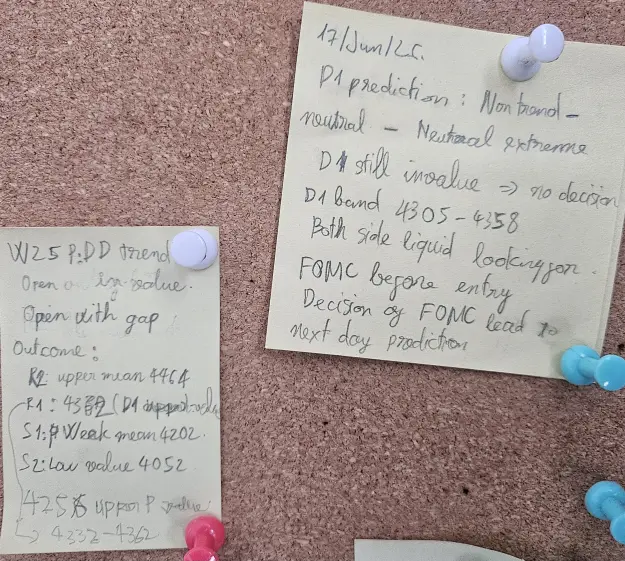 W25 P:DD trend
Open in-value.
Open with gap
Outcome:
R2: upper mean 4464
R1: (D1
S1: Week mean 4202.
S2: Low value 4052
upper P value
4332-4362
17/Jun/25.
D1 prediction: Nontrend-
neutral - Neutral extreme
D1 still invalue => no decision
D1 band 4305-4358
Both side liquid looking for.
FOMC before entry
Decision of FOMC lead to
next day prediction